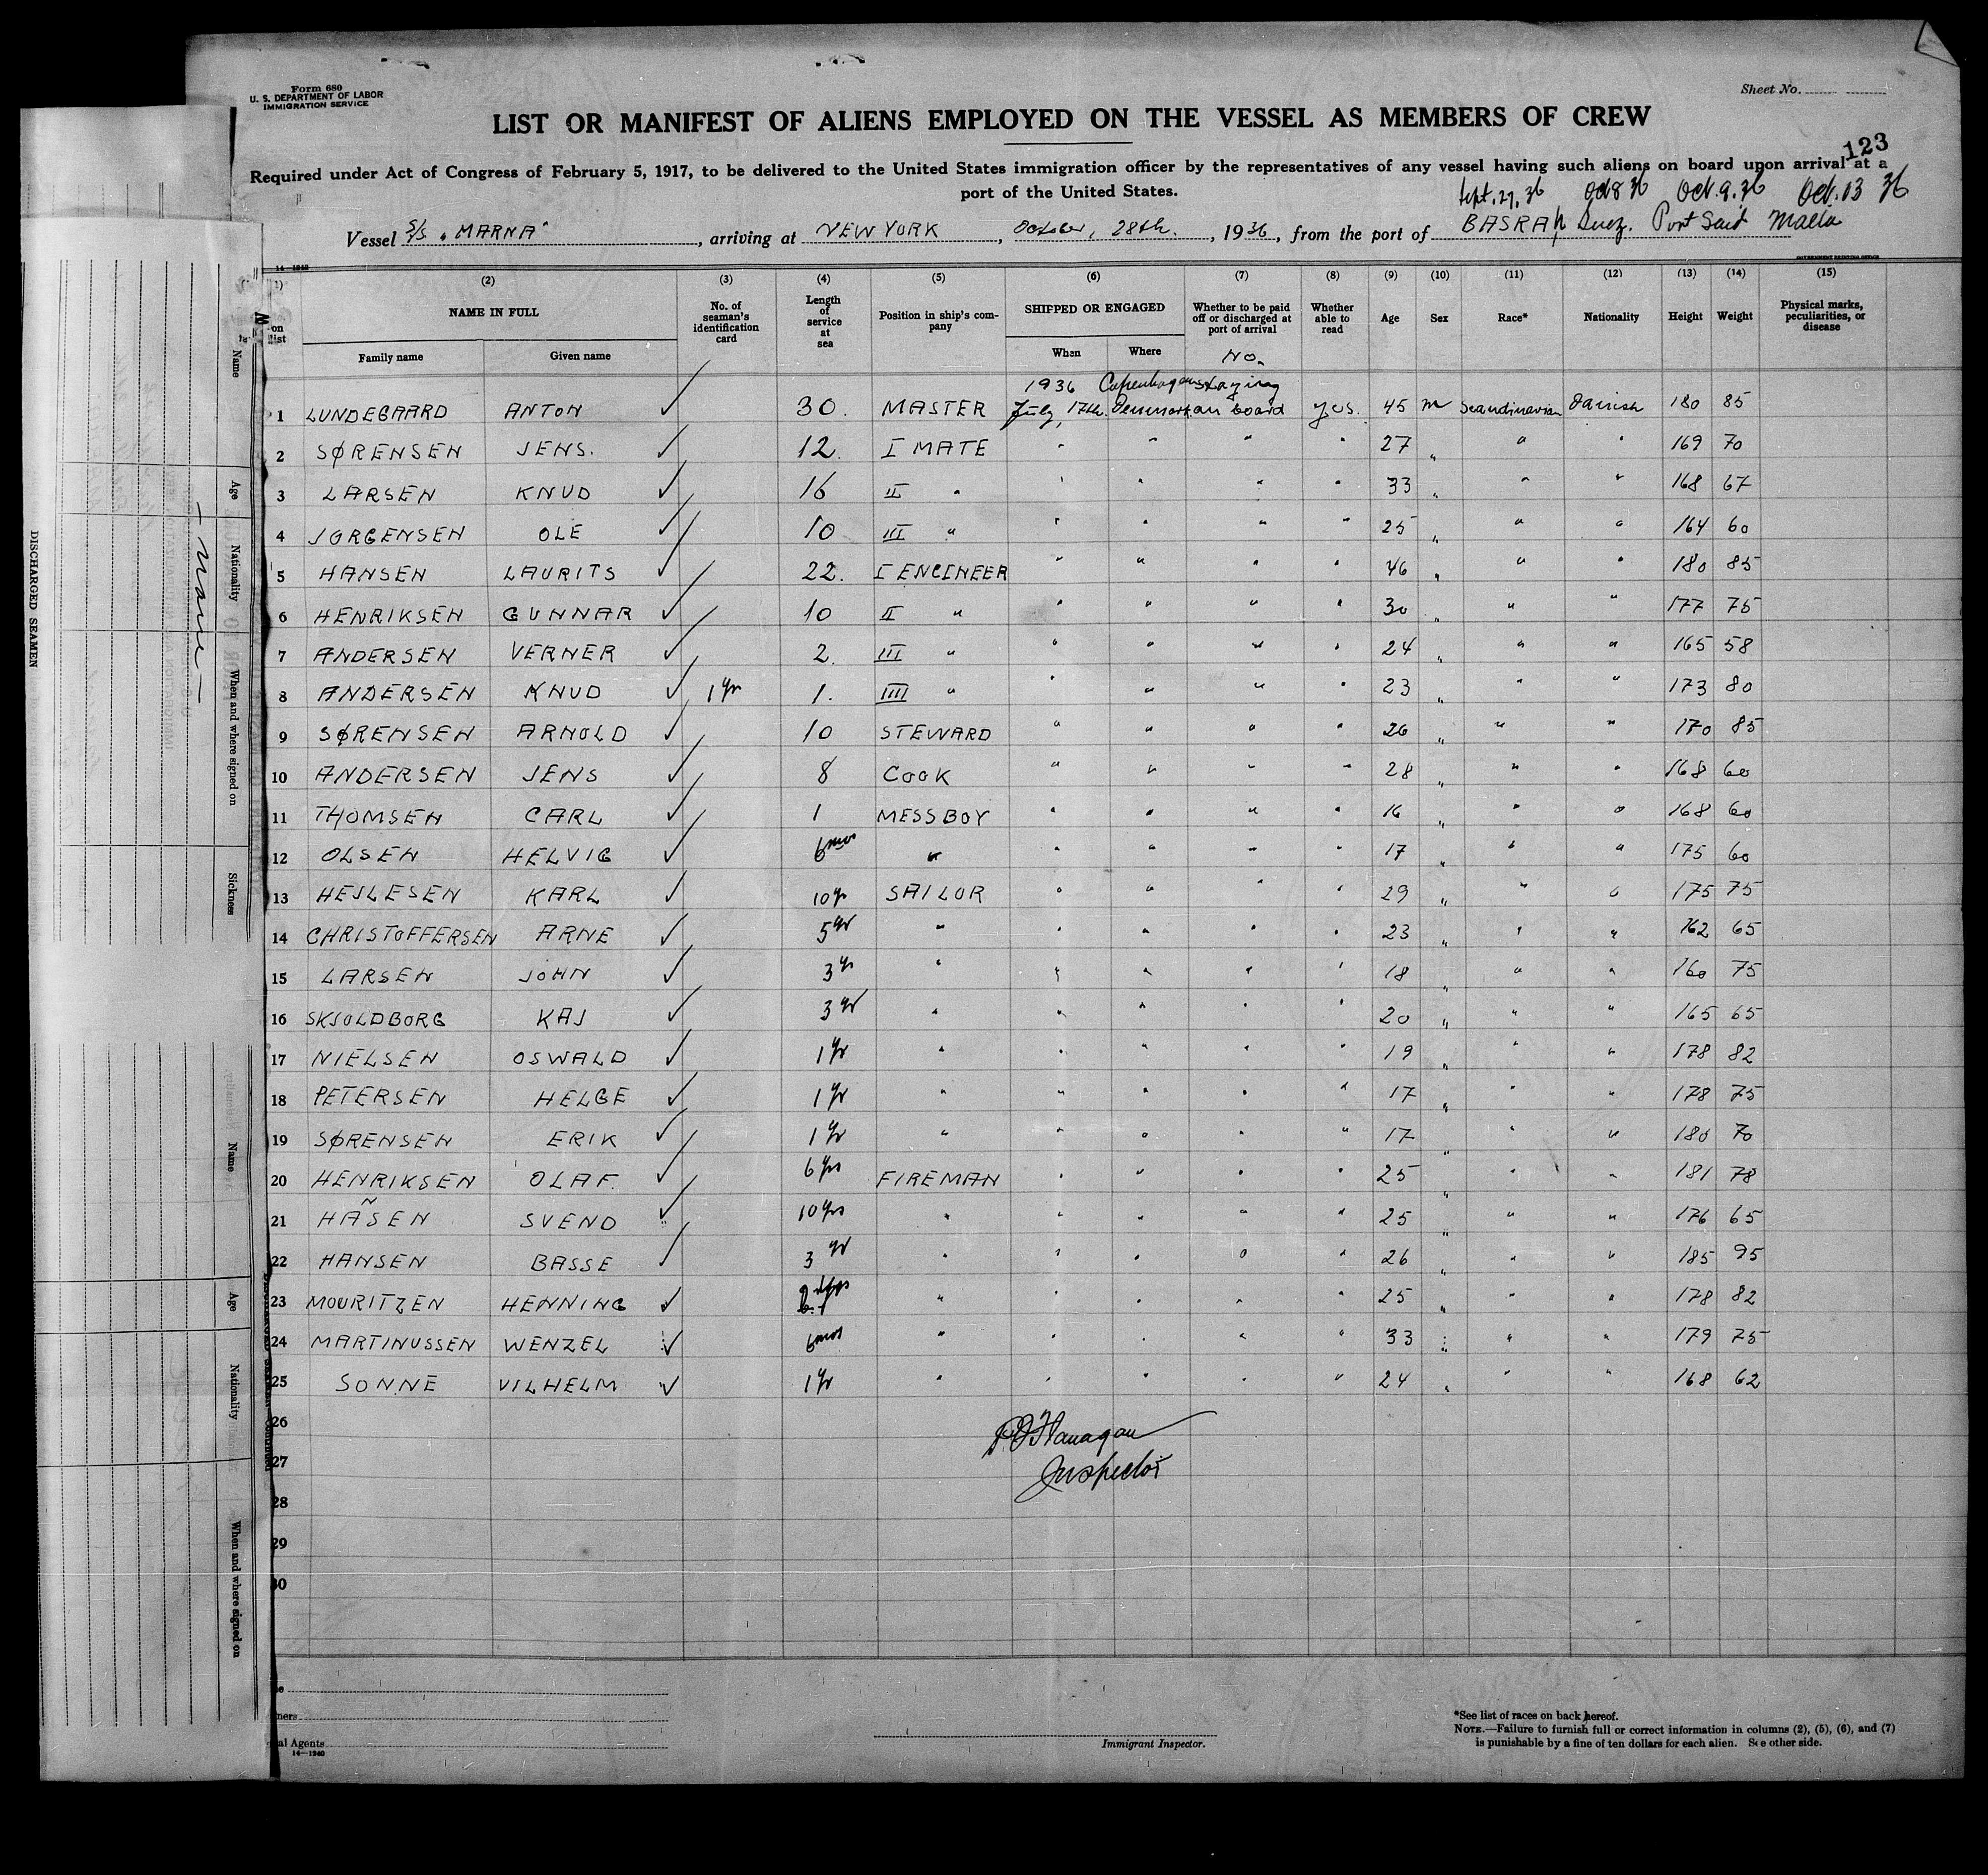 Form 680
U. S. DEPARTMENT OF LABOR
IMMIGRATION SERVICE
Sheet No.
LIST OR MANIFEST OF ALIENS EMPLOYED ON THE VESSEL AS MEMBERS OF CREW
123
Required under Act of Congress of February 5, 1917, to be delivered to the United States immigration officer by the representatives of any vessel having such aliens on board upon arrival at a
port of the United States.
Sept. 27, 36 Oct 8 36 Oct. 9. 36 Oct. 13 36
Vessel S/S „MARNA", arriving at NEW YORK, October, 28th., 1936, from the port of BASRAh Suez. Port Said Malta
14—1940
GOVERNMENT PRINTING OFFICE
(1) (2) (3) (4) (5) (6) (7) (8) (9) (10) (11) (12) (13) (14) (15)
on list NAME IN FULL Family name Given name No. of seaman's identification card Length of service at sea Position in ship's company SHIPPED OR ENGAGED When Where Whether to be paid off or discharged at port of arrival Whether able to read Age Sex Race* Nationality Height Weight Physical marks, peculiarities, or disease
No.
1936 Copenhagen staying
1 LUNDEGAARD ANTON ✓ 30. MASTER July, 17th. Denmark on board yes. 45 m Scandinavian Danish 180 85
2 SØRENSEN JENS. ✓ 12. I MATE " " " " 27 " " " 169 70
3 LARSEN KNUD ✓ 16 II " " " " " 33 " " " 168 67
4 JØRGENSEN OLE ✓ 10 III " " " " " 25 " " " 164 60
5 HANSEN LAURITS ✓ 22. I ENGINEER " " " " 46 " " " 180 85
6 HENRIKSEN GUNNAR ✓ 10 II " " " " " 30 " " " 177 75
7 ANDERSEN VERNER ✓ 2. III " " " " " 24 " " " 165 58
8 ANDERSEN KNUD ✓ 1 yr 1. IIII " " " " " 23 " " " 173 80
9 SØRENSEN ARNOLD ✓ 10 STEWARD " " " " 26 " " " 170 85
10 ANDERSEN JENS ✓ 8 COOK " " " " 28 " " " 168 60
11 THOMSEN CARL ✓ 1 MESSBOY " " " " 16 " " " 168 60
12 OLSEN HELVIG ✓ 6 mos " " " " " 17 " " " 175 60
13 HEJLESEN KARL ✓ 10 yr SAILOR " " " " 29 " " " 175 75
14 CHRISTOFFERSEN ARNE ✓ 5 yr " " " " " 23 " " " 162 65
15 LARSEN JOHN ✓ 3 yr " " " " " 18 " " " 160 75
16 SKJOLDBORG KAJ ✓ 3 yr " " " " " 20 " " " 165 65
17 NIELSEN OSWALD ✓ 1 yr " " " " " 19 " " " 178 82
18 PETERSEN HELGE ✓ 1 yr " " " " " 17 " " " 178 75
19 SØRENSEN ERIK ✓ 1 yr " " " " " 17 " " " 180 70
20 HENRIKSEN OLAF. ✓ 6 yrs FIREMAN " " " " 25 " " " 181 78
21 HASEN SVEND ✓ 10 yrs " " " " " 25 " " " 176 65
22 HANSEN BASSE ✓ 3 yr " " " " " 26 " " " 185 95
23 MOURITZEN HENNING ✓ " " " " " 25 " " " 178 82
24 MARTINUSSEN WENZEL ✓ 6 mos " " " " " 33 " " " 179 75
25 SONNE VILHELM ✓ 1 yr " " " " " 24 " " " 168 62
26
P O'Flanagan
27
Inspector
28
29
30
al Agents
14—1940
Immigrant Inspector.
*See list of races on back hereof.
NOTE.—Failure to furnish full or correct information in columns (2), (5), (6), and (7)
is punishable by a fine of ten dollars for each alien. See other side.
DISCHARGED SEAMEN
— None —
Name
Age
Nationality
When and where signed on
Sickness
Name
Age
Nationality
When and where signed on